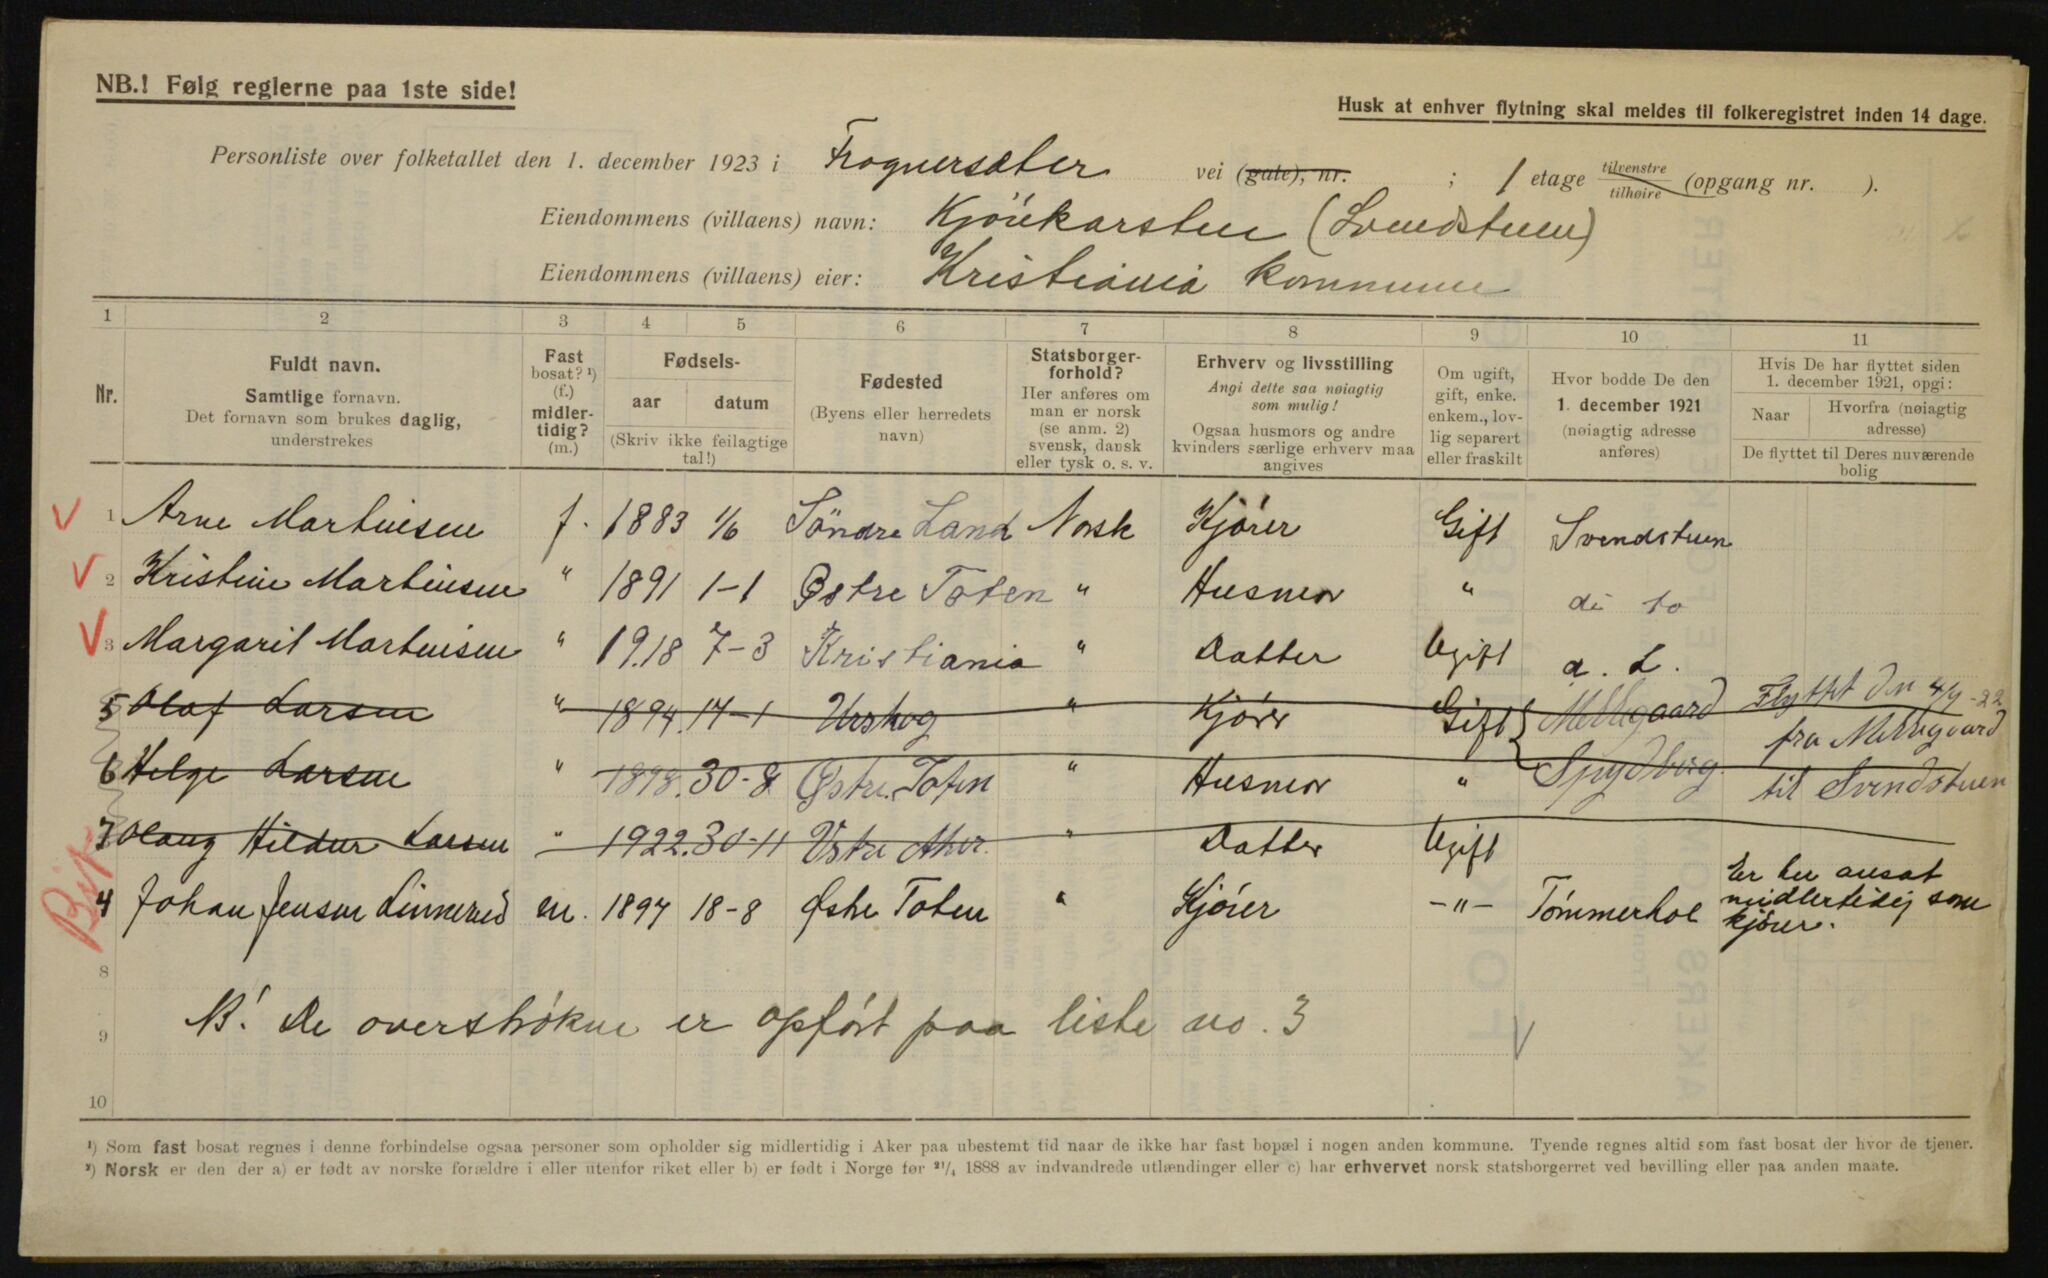 NB.! Følg reglerne paa 1ste side!
Husk at enhver flytning skal meldes til folkeregistret inden 14 dage.
Personliste over folketallet den 1. december 1923 i Frognersæter vei (gate), nr. ; 1 etage tilvenstre tilhøire (opgang nr. ).
Eiendommens (villaens) navn: (Svendstuen)
Eiendommens (villaens) eier: Kristiania kommune
1 2 3 4 5 6 7 8 9 10 11
Nr.
Fuldt navn.
Samtlige fornavn.
Det fornavn som brukes daglig,
understrekes
Fast
bosat? ¹)
(f.)
midler-
tidig?
(m.)
Fødsels-
aar datum
(Skriv ikke feilagtige
tal!)
Fødested
(Byens eller herredets
navn)
Statsborger-
forhold?
Her anføres om
man er norsk
(se anm. 2)
svensk, dansk
eller tysk o. s. v.
Erhverv og livsstilling
Angi dette saa nøiagtig
som mulig!
Ogsaa husmors og andre
kvinders særlige erhverv maa
angives
Om ugift,
gift, enke.
enkem., lov-
lig separert
eller fraskilt
Hvor bodde De den
1. december 1921
(nøiagtig adresse
anføres)
Hvis De har flyttet siden
1. december 1921, opgi:
Naar Hvorfra (nøiagtig
adresse)
De flyttet til Deres nuværende
bolig
1 Arne Martinsen f. 1883 1/6 Söndre Land Norsk Kjører Gift Svendstuen
2 Kristine Martinsen " 1891 1-1 Østre Toten " Husmor " di to
3 Margarit Martinsen " 1918 7-3 Kristiania " Datter Ugift d. L.
5 Olaf Larsen " 1894. 17-1 Urskog " Kjører Gift Flyttet den 4/9-22
6 Helge Larsen " 1898. 30-8 Østre Toten " Husmor " Spydberg fra til Svendstuen
7 Olaug Hildur Larsen " 1922. 30-11 Vstre Aker. " Datter Ugift
4 Johan Jensen Linnerud m. 1897 18-8 Østre Toten " Kjører -"- Tömmerhol Er her ansat
midlertidig som
kjører.
8
NB! De overstrøkne er opført paa liste no. 3
9
10
¹) Som fast bosat regnes i denne forbindelse ogsaa personer som opholder sig midlertidig i Aker paa ubestemt tid naar de ikke har fast bopæl i nogen anden kommune. Tyende regnes altid som fast bosat der hvor de tjener.
²) Norsk er den der a) er født av norske forældre i eller utenfor riket eller b) er født i Norge før ²¹/₄ 1888 av indvandrede utlændinger eller c) har erhvervet norsk statsborgerret ved bevilling eller paa anden maate.